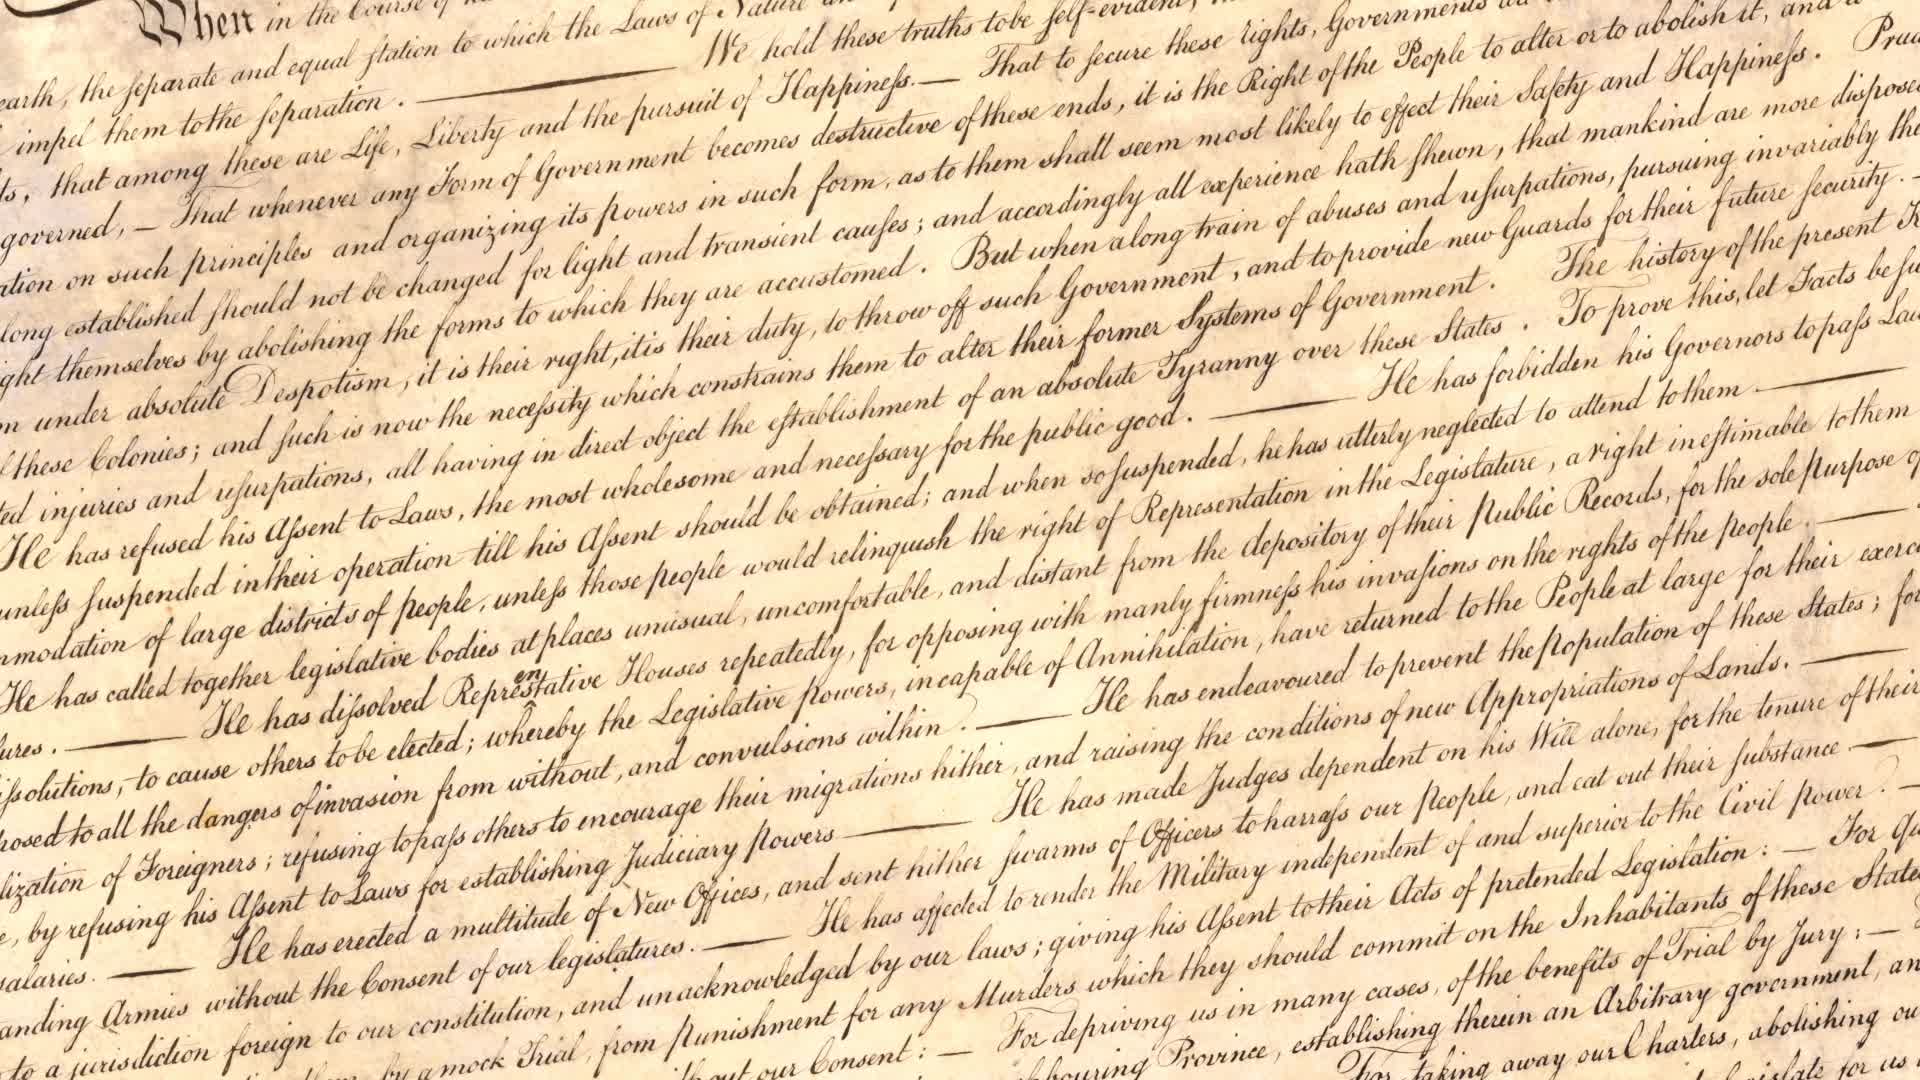 When in the Course of
earth, the separate and equal station to which the Laws of Nature
impel them to the separation. — We hold these truths to be self-evident,
ts, that among these are Life, Liberty and the pursuit of Happiness.— That to secure these rights, Governments
governed, — That whenever any Form of Government becomes destructive of these ends, it is the Right of the People to alter or to abolish it, and
ation on such principles and organizing its powers in such form, as to them shall seem most likely to effect their Safety and Happiness. Prud
long established should not be changed for light and transient causes; and accordingly all experience hath shewn, that mankind are more disposed
ght themselves by abolishing the forms to which they are accustomed. But when a long train of abuses and usurpations, pursuing invariably the
m under absolute Despotism, it is their right, it is their duty, to throw off such Government, and to provide new Guards for their future security. —
f these Colonies; and such is now the necessity which constrains them to alter their former Systems of Government. The history of the present K
ted injuries and usurpations, all having in direct object the establishment of an absolute Tyranny over these States. To prove this, let Facts be su
He has refused his Assent to Laws, the most wholesome and necessary for the public good. — He has forbidden his Governors to pass Law
unless suspended in their operation till his Assent should be obtained; and when so suspended, he has utterly neglected to attend to them —
mmodation of large districts of people, unless those people would relinquish the right of Representation in the Legislature, a right inestimable to them
He has called together legislative bodies at places unusual, uncomfortable, and distant from the depository of their Public Records, for the sole purpose of
ures. — He has dissolved Representative Houses repeatedly, for opposing with manly firmness his invasions on the rights of the people. —
issolutions, to cause others to be elected; whereby the Legislative powers, incapable of Annihilation, have returned to the People at large for their exerci
posed to all the dangers of invasion from without, and convulsions within. — He has endeavoured to prevent the population of these States; for
lization of Foreigners; refusing to pass others to encourage their migrations hither, and raising the conditions of new Appropriations of Lands. —
e, by refusing his Assent to Laws for establishing Judiciary powers — He has made Judges dependent on his Will alone, for the tenure of their
salaries. — He has erected a multitude of New Offices, and sent hither swarms of Officers to harrass our people, and eat out their substance. —
anding Armies without the Consent of our legislatures. — He has affected to render the Military independent of and superior to the Civil power. —
to a jurisdiction foreign to our constitution, and unacknowledged by our laws; giving his Assent to their Acts of pretended Legislation: — For Qu
them, by a mock Trial, from punishment for any Murders which they should commit on the Inhabitants of these State
hout our Consent: — For depriving us in many cases, of the benefits of Trial by Jury: —
bouring Province, establishing therein an Arbitrary government, an
For taking away our Charters, abolishing ou
islate for us